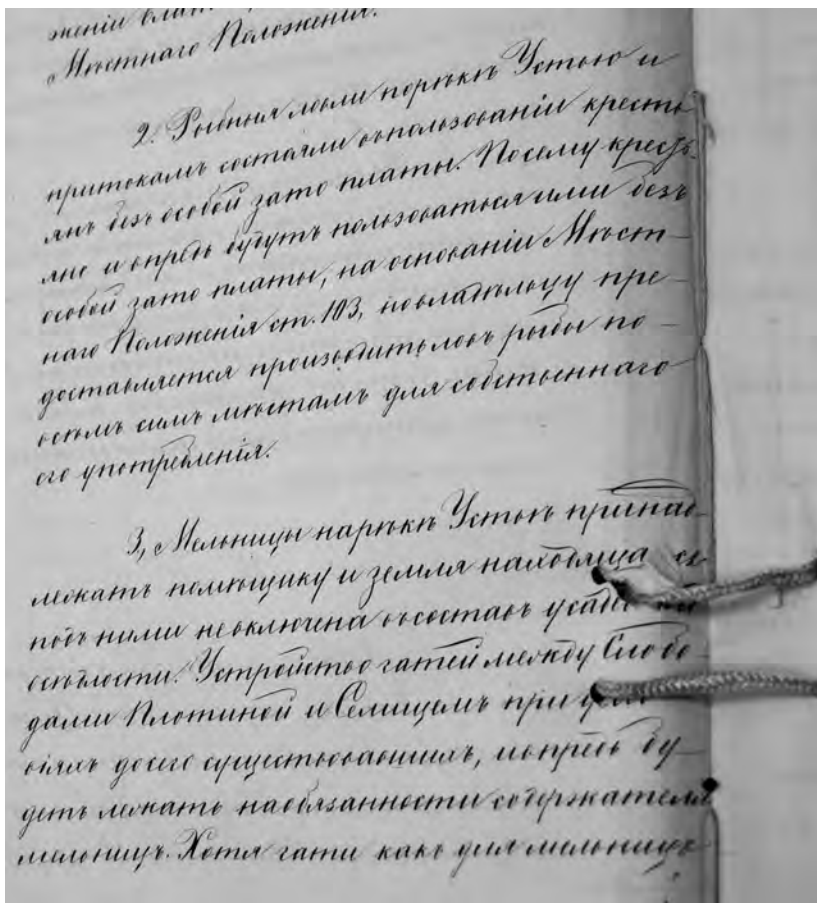 женіи
Мѣстнаго Положенія.
2. Рыбныя ловли порѣкѣ Устью и
притокамъ состояли впользованіи кресть
янъ безъ особой зато платы. Посему кресть-
яне и впредь будутъ пользоваться ими безъ
особой зато платы, на основаніи Мѣст-
наго Положенія ст. 103, новладѣльцу пре-
доставляется производить ловъ рыбы по-
всѣмъ симъ мѣстамъ для собственнаго
его употребленія.
3, Мельницы нарѣкѣ Устьѣ принад-
лежатъ помѣщику и земля находящаяся
подъ ними невключена всоставъ усадебной
осѣдлости. Устройство гатей между Слобо-
дами Плотиной и Селищемъ при усло-
віяхъ досего существовавшихъ, ивпредь бу-
детъ лежать наобязанности содержателя
мельницъ. Хотя гати какъ для мельницъ